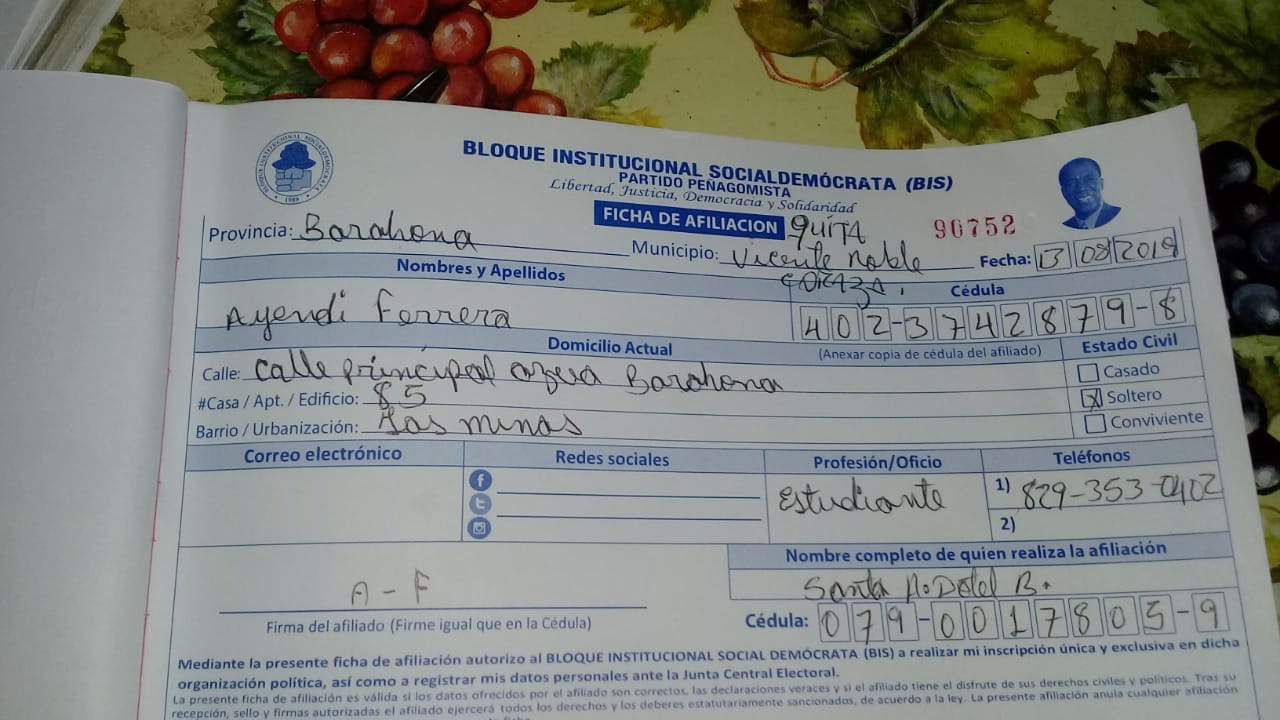 BLOQUE INSTITUCIONAL SOCIALDEMÓCRATA (BIS)
PARTIDO PEÑAGOMISTA
Libertad, Justicia, Democracia y Solidaridad
BLOQUE INSTITUCIONAL SOCIALDEMOCRATA
FICHA DE AFILIACION QUITA 90752
Provincia: Barahona Municipio: Vicente Noble Fecha: 13 08 2019
CORAZA.
Nombres y Apellidos Cédula
Ayendi Ferrera 402-3742879-8
Domicilio Actual (Anexar copia de cédula del afiliado) Estado Civil
Calle: Calle principal azua Barahona Casado
#Casa / Apt. / Edificio: 85 X Soltero
Barrio / Urbanización: Las minas Conviviente
Correo electrónico Redes sociales Profesión/Oficio Teléfonos
Estudiante 1) 829-353-0402
2)
Nombre completo de quien realiza la afiliación
A - F Santa B.
Firma del afiliado (Firme igual que en la Cédula) Cédula: 079-0017805-9
Mediante la presente ficha de afiliación autorizo al BLOQUE INSTITUCIONAL SOCIAL DEMÓCRATA (BIS) a realizar mi inscripción única y exclusiva en dicha
organización política, así como a registrar mis datos personales ante la Junta Central Electoral.
La presente ficha de afiliación es válida si los datos ofrecidos por el afiliado son correctos, las declaraciones veraces y si el afiliado tiene el disfrute de sus derechos civiles y políticos. Tras su
recepción, sello y firmas autorizadas el afiliado ejercerá todos los derechos y los deberes estatutariamente sancionados, de acuerdo a la ley. La presente afiliación anula cualquier afiliación